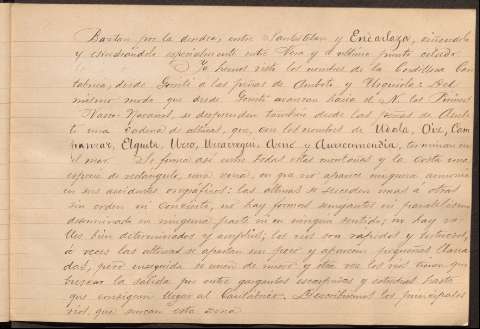 Baztan por la dicha, entre Santesteban y Enearlaza, ciñendola
y estrechándola especialmente entre Vera y el último punto citado.
Ya hemos visto los nombres de la Cordillera Can-
tabrica, desde Gorriti a las peñas de Amboto y Urquiola: Del
mismo modo que desde Gorriti avanzan hacia el N. los Pirineos
Vasco-Navarros, se desprenden también desde las peñas de
una cadena de alturas, que, con los nombres de Udala,
Elgueta, Urco, Urcarregui, Arno y Aurreamendia, terminan en
el mar. Se forma así entre todas estas montañas y la costa una
especie de rectangulo, una zona, en que no aparece ninguna armonia
en sus accidentes orográficos: las alturas se suceden unas á otras
sin orden ni concierto, no hay formas semejantes ni paralelismo
determinado en ninguna parte ni en ningun sentido; no hay va-
lles bien determinados y amplios; los rios son rápidos y tortuosos,
á veces las alturas se apartan un poco y aparecen pequeñas llana-
das, pero enseguida se unen de nuevo y otra vez los rios tienen que
buscar la salida por entre gargantas escarpadas y estrechas hasta
que consiguen llegar al Cantabrico. Describiremos los principales
rios que surcan esta zona